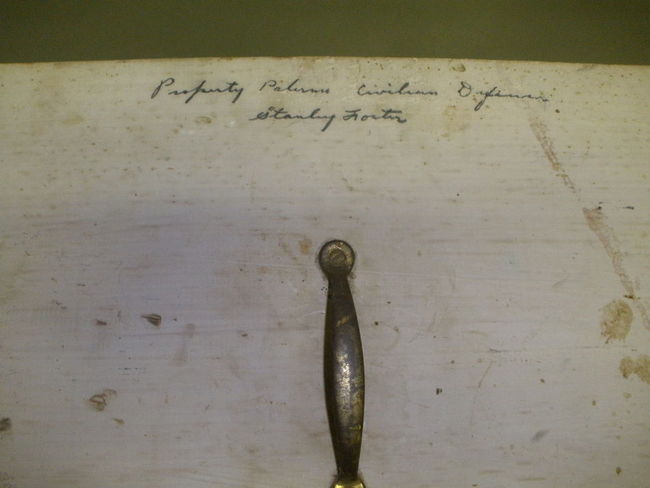 Property Palermo Civilian Defense
Stanley Foster